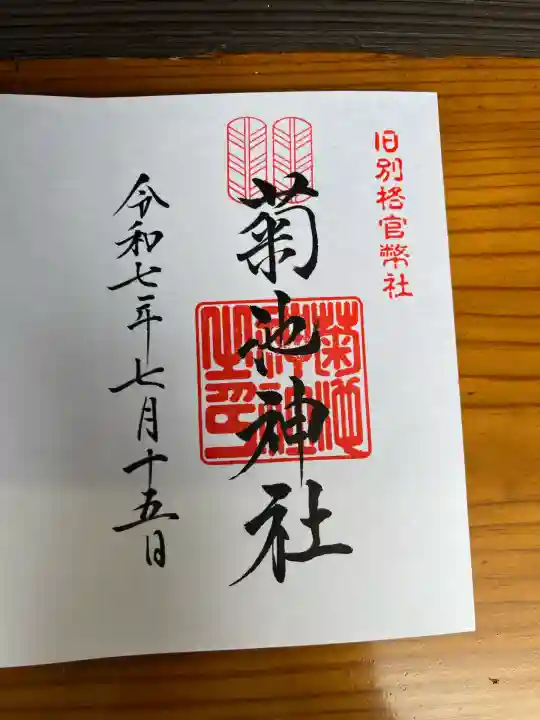 旧別格官幣社
菊池神社
菊池
神社
之印
令和七年七月十五日